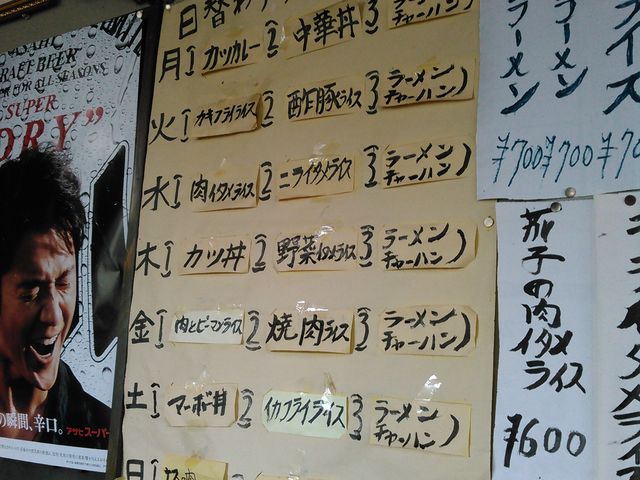 日替わり
月 1 カツカレー 2 中華丼 3 ラーメン
チャーハン
火 1 カキフライライス 2 酢豚ライス 3 ラーメン
チャーハン
水 1 肉イタメライス 2 ニライタメライス 3 ラーメン
チャーハン
木 1 カツ丼 2 野菜イタメライス 3 ラーメン
チャーハン
金 1 肉とピーマンライス 2 焼肉ライス 3 ラーメン
チャーハン
土 1 マーボ丼 2 イカフライライス 3 ラーメン
チャーハン
日 1
ASAHI
DRAFT BEER
FOR ALL SEASONS
SUPER
DRY"
の瞬間、辛口。
アサヒスーパー
ラーメン
¥700
ラーメン
¥700
ライス
¥70
茄子の肉イタメ
ライス
¥600
イタメライス